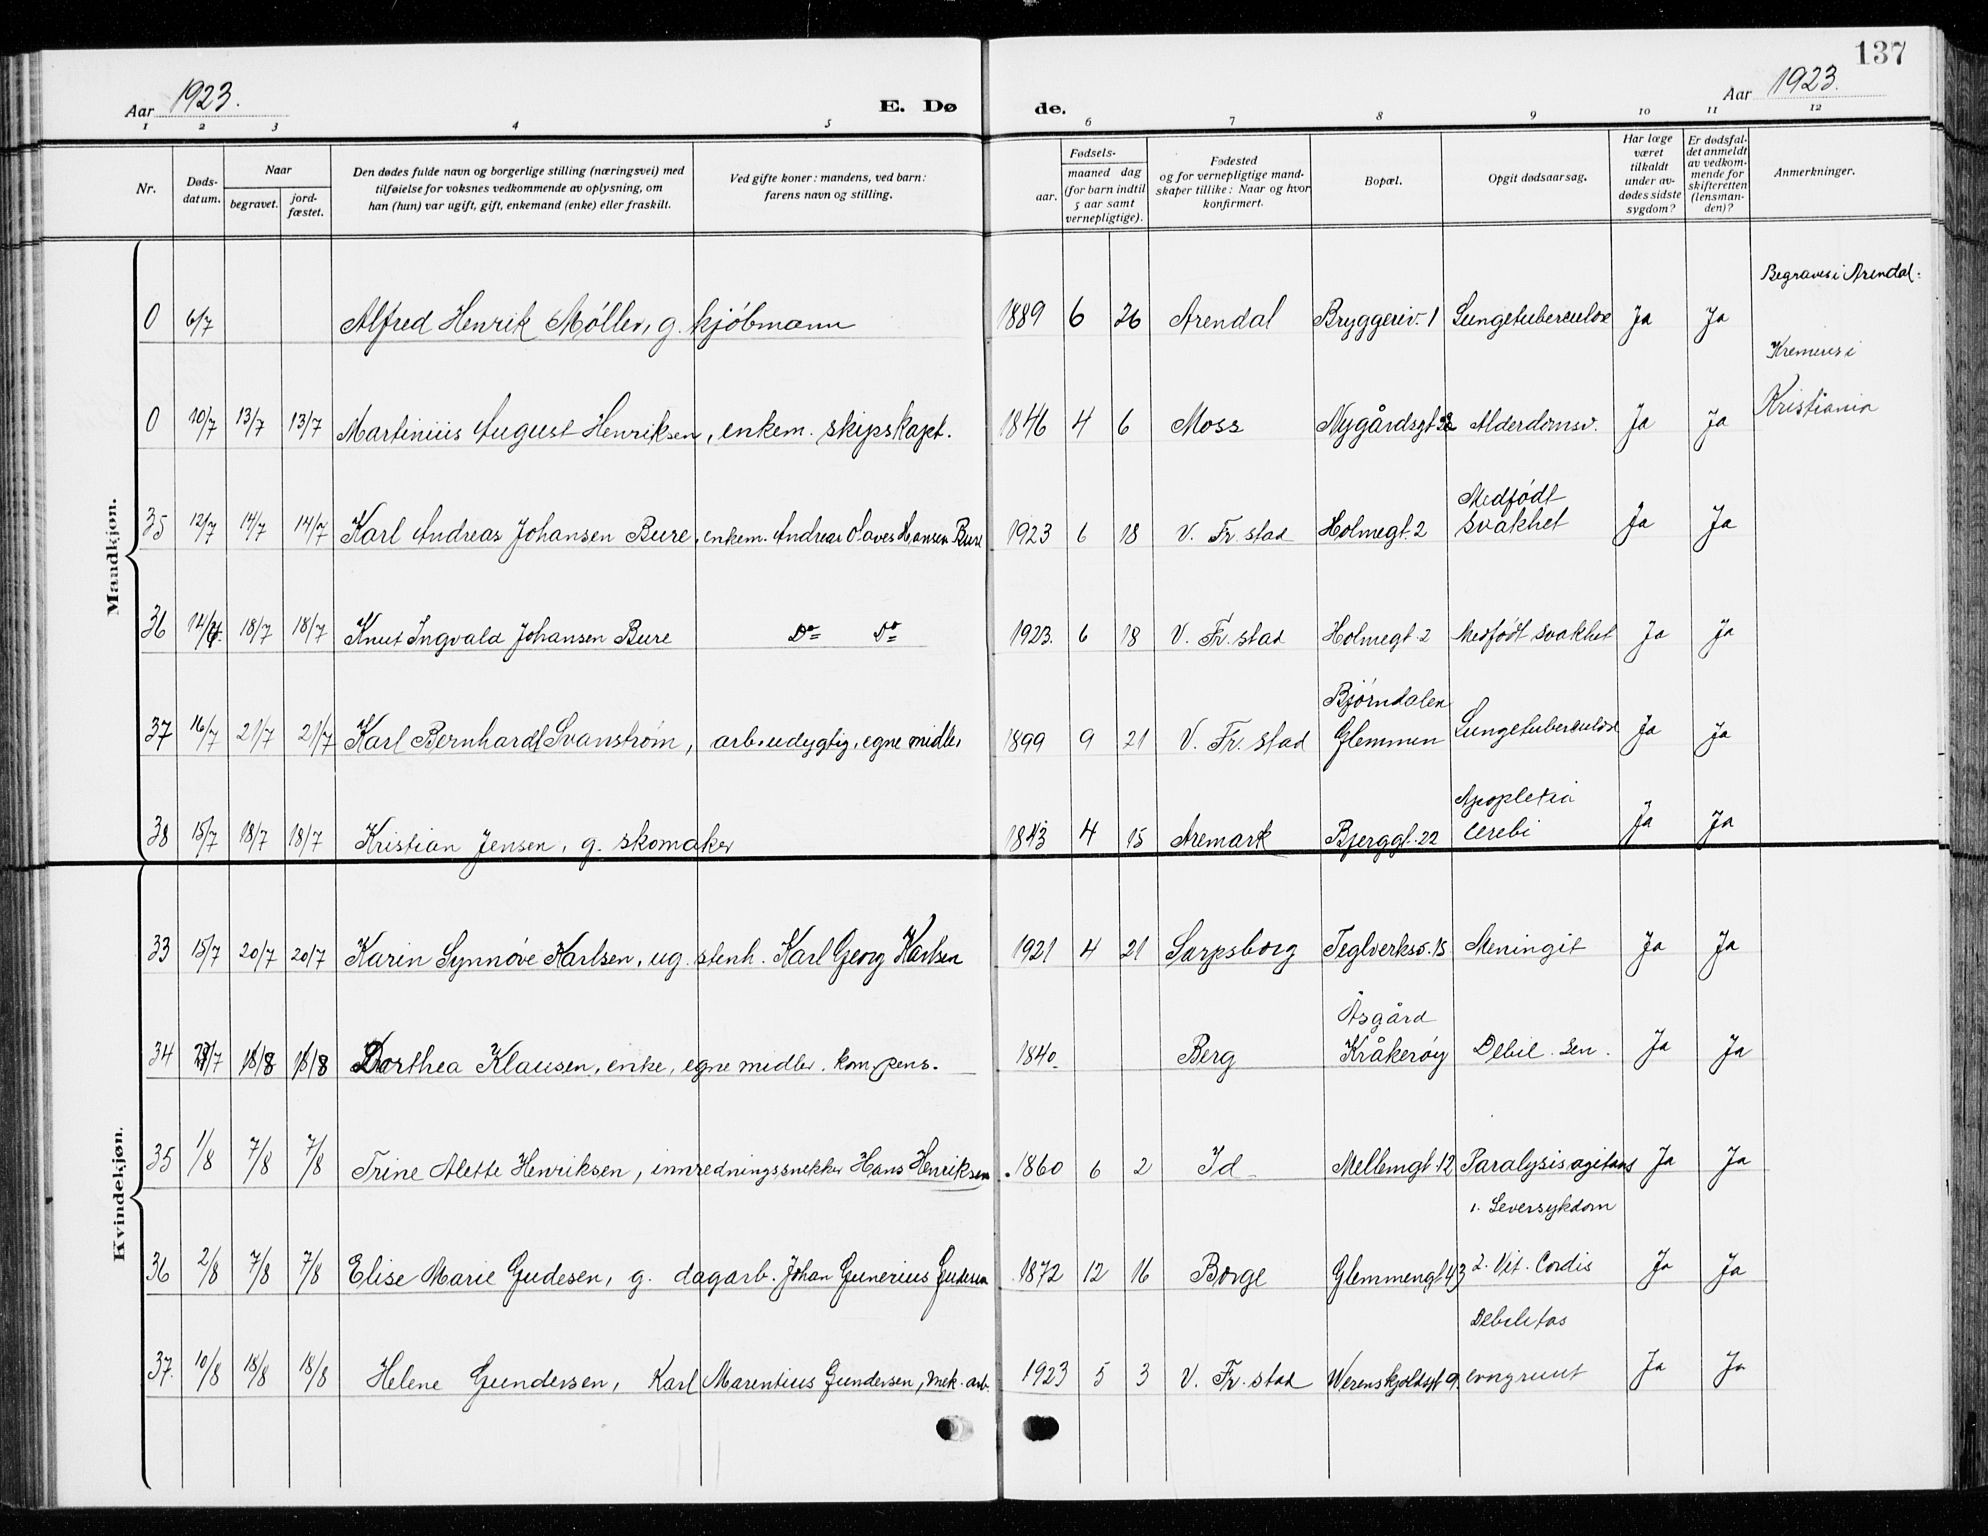 137
Aar 1923.
E. Dø de.
Aar 1923.
1 2 3 4 5 6 7 8 9 10 11 12
Nr.
Døds-datum.
Naar
begravet.
jord-fæstet.
Den dødes fulde navn og borgerlige stilling (næringsvei) med
tilføielse for voksnes vedkommende av oplysning, om
han (hun) var ugift, gift, enkemand (enke) eller fraskilt.
Ved gifte koner: mandens, ved barn:
farens navn og stilling.
Fødsels-
aar.
maaned dag
(for barn indtil
5 aar samt
vernepligtige).
Fødested
og for vernepligtige mand-
skaper tillike: Naar og hvor
konfirmert.
Bopæl.
Opgit dødsaarsag.
Har læge
været
tilkaldt
under av-
dødes sidste
sygdom?
Er dødsfal-
det anmeldt
av vedkom-
mende for
skifteretten
(lensman-
den)?
Anmerkninger.
Mandkjøn.
0 6/7 Alfred Henrik Møller, g. kjøbmann 1889 6 26 Arendal Bryggeriv. 1 Lungetuberculose Ja Ja Begraves i Arendal.
0 10/7 13/7 13/7 Martinius August Henriksen, enkem. skipskapt. 1846 4 6 Moss Nygårdsgt Alderdomsv. Ja Ja Kremeres i Kristiania
35 12/7 14/7 14/7 Karl Andreas Johansen Bure, enkem. Andreas Olaves Hansen Bure 1923 6 18 V. Fr. stad Holmegt. 2 Medfødt svakhet Ja Ja
36 14/7 18/7 18/7 Knut Ingvald Johansen Bure Do Do 1923. 6 18 V. Fr. stad Holmegt. 2 Medfødt svakhet Ja Ja
37 16/7 21/7 21/7 Karl Bernhard Svanstrøm, arb.udygtig, egne midler 1899 9 21 V. Fr. stad Bjørndalen Glemmen Lungetuberculose Ja Ja
38 15/7 18/7 18/7 Kristian Jensen, g. skomaker 1843 4 15 Aremark Bjerggt. 22 Apoplexia Cerebi Ja Ja
Kvindekjøn.
33 15/7 20/7 20/7 Karin Synnøve Karlsen, ug. stenh. Karl Georg Karlsen 1921 4 21 Sarpsborg Teglverksv. 15 Meningit Ja Ja
34 /7 /8 /8 Dorthea Klausen, enke, egne midler. kom. pens. 1840. Berg Åsgård Kråkerøy Debil. sen. Ja Ja
35 1/8 7/8 7/8 Trine Alette Henriksen, innredningssnekker Hans Henriksen 1860 6 2 Id Mellemgt. 12 Paralysis agitans Ja Ja
36 2/8 7/8 7/8 Elise Marie Gudesen, g. dagarb. Johan Gunerius Gudesen 1872 12 16 Borge Glemmengt 43 1. Leversykdom 2. Vit. Cordis Ja Ja
37. 10/8 18/8 18/8 Helene Gundersen, Karl Marentius Gundersen, mek. arb. 1923 5 3 V. Fr. stad Werenskjoldsgt 9. Debilitas congruut Ja Ja